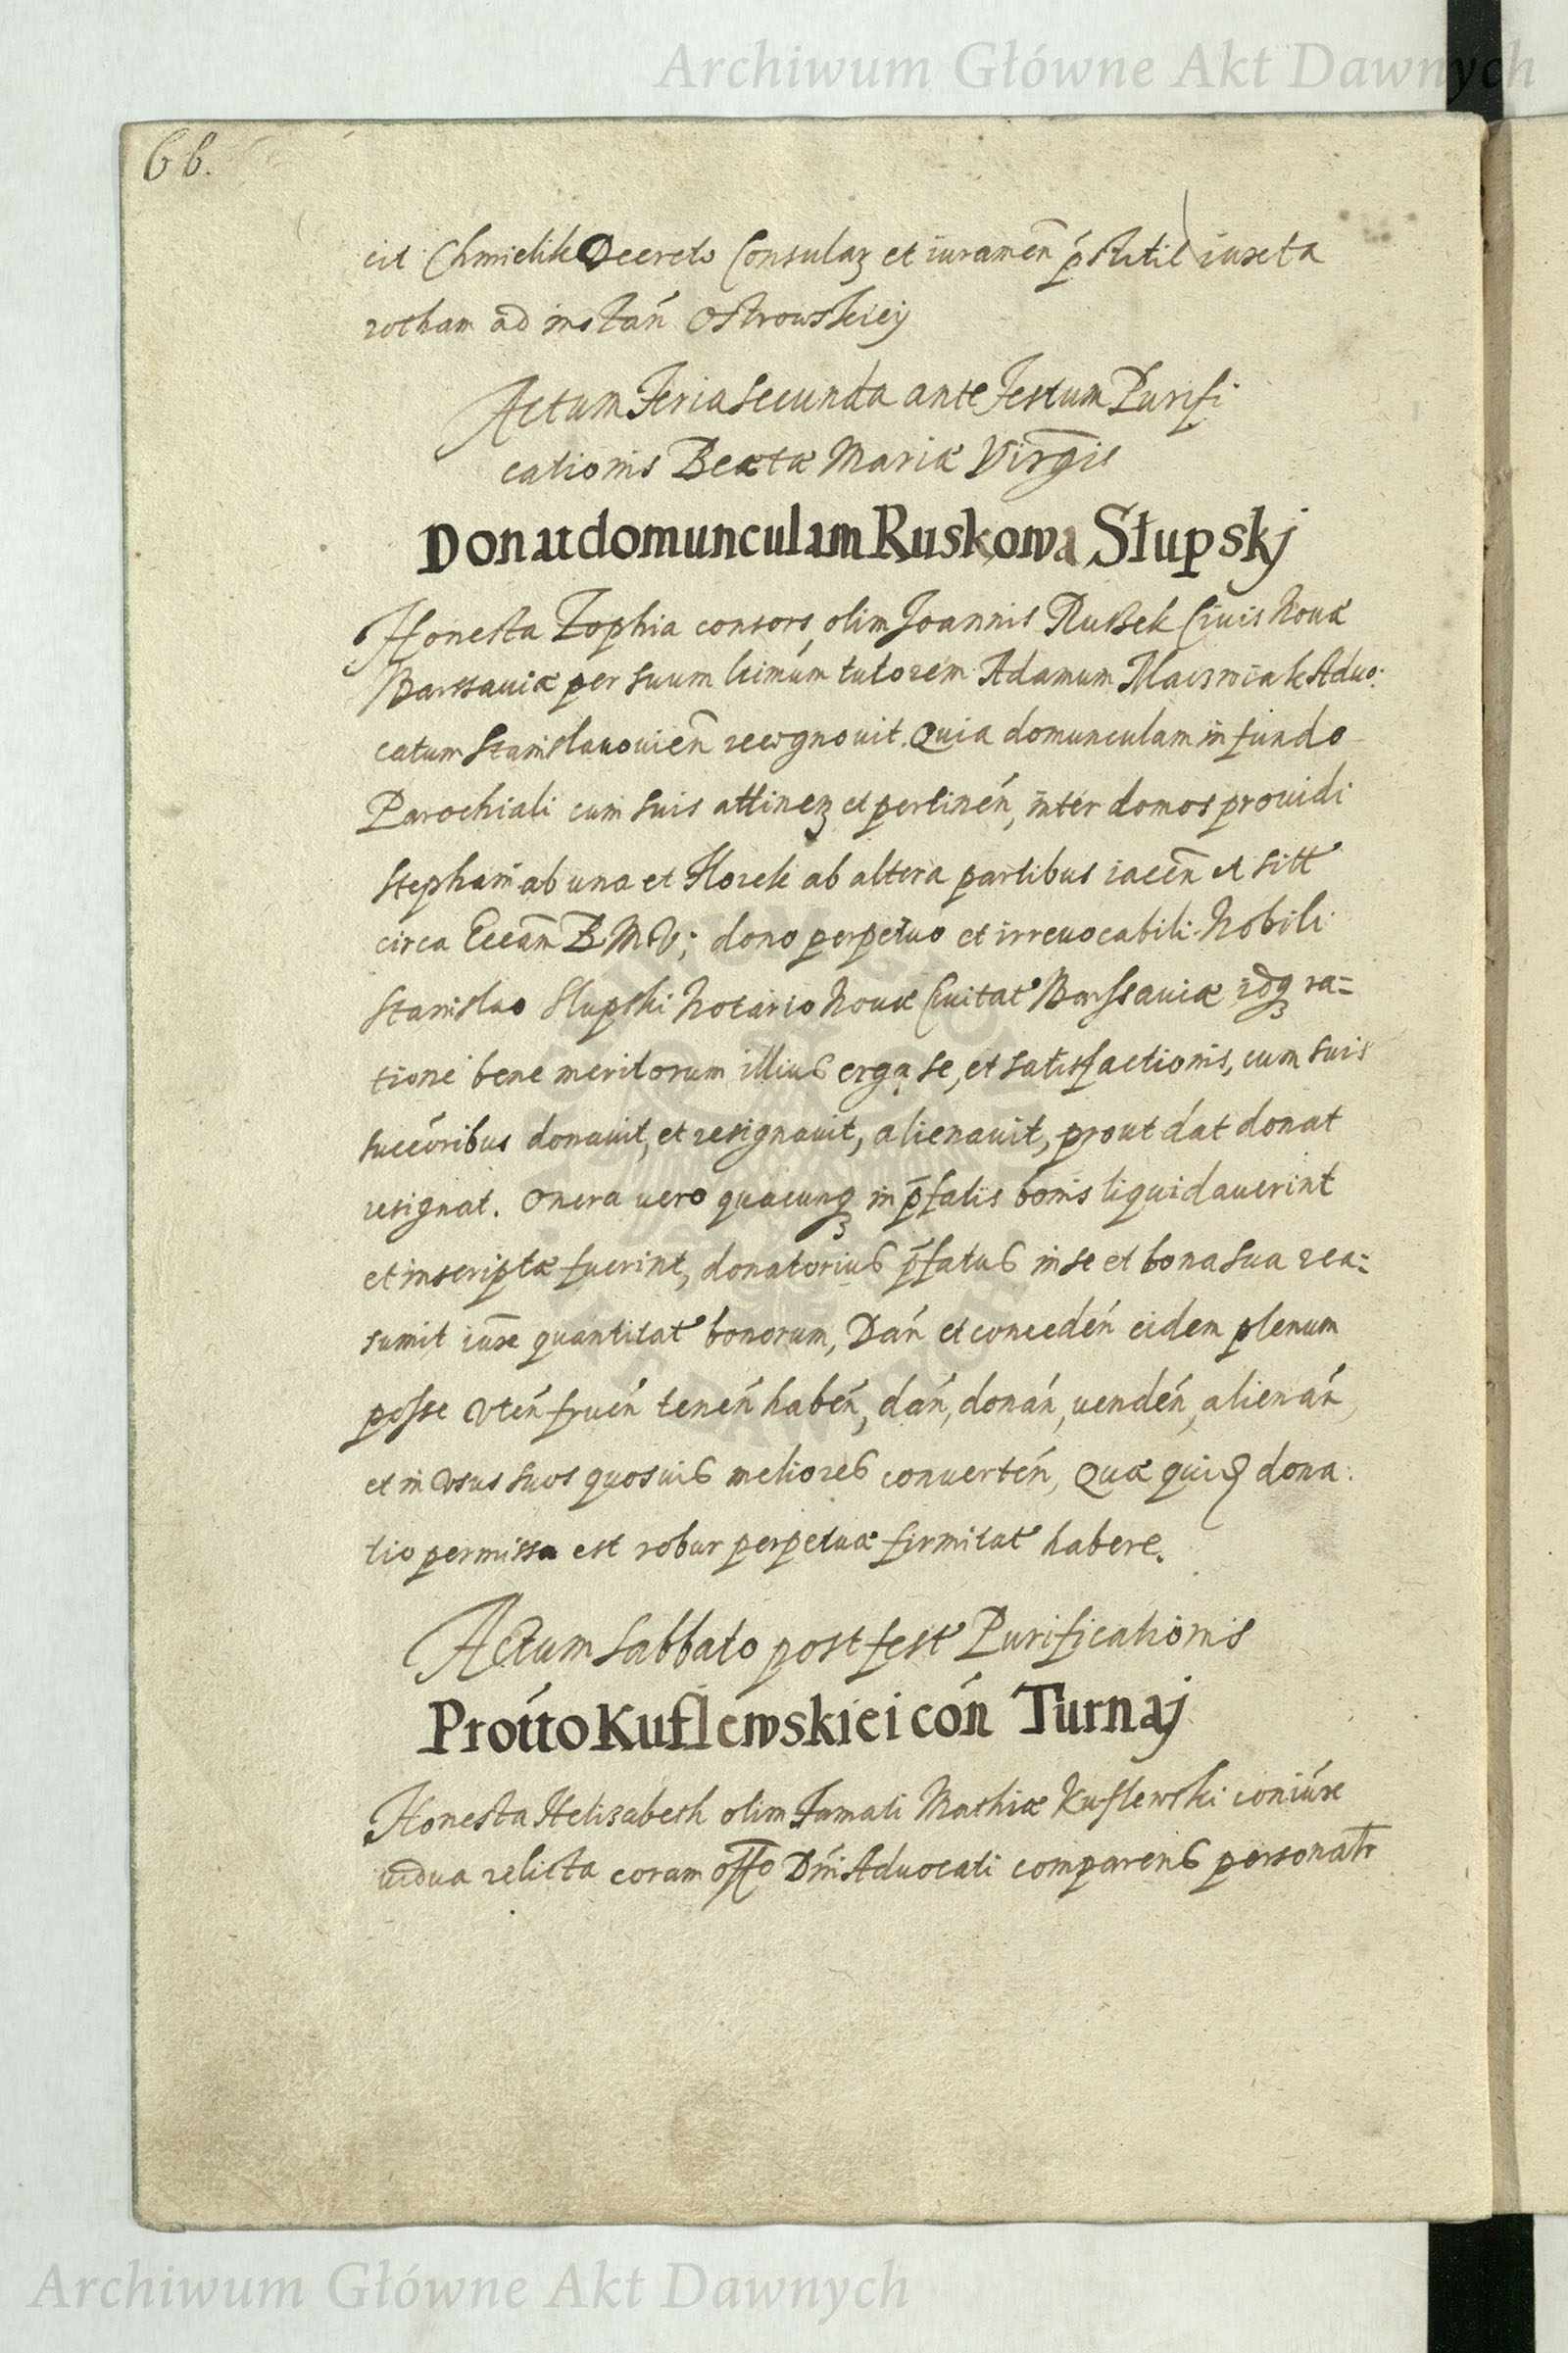 Archiwum Główne Akt Dawnych
66.
cit Chmielik Decreto Consulaꝫ et iuramen̄ p̄stitit iuxta
rotham ad instań Ostrowskiey
Actum Feria Secunda ante Festum Purifi
cationis Beatæ Mariæ Virḡis
Donat domunculam Ruskowa Słupskj
Honesta Zophia consors olim Joannis Russek Ciuis Nouæ
Warssauiæ per suum ltimúm tutorem Adamum Aduo:
catum Stanislauouien̄ recognouit. Quia domunculam in fundo
Parochiali cum suis attineꝫ et pertineń, inter domos prouidi
Stephani ab una et Horek ab altera partibus iacen̄ et sitt
circa Eccam̄ B. M. V; dono perpetuo et irreuocabili Nobili
Stanislao Slupski Notario Nouæ Ciuitat Warssauiæ idqꝫ ra=
tione bene meritorum illius erga se, et satisfactionis, cum suis
succéoribus donauit, et resignauit, alienauit, prout dat donat
resignat. Onera uero quæcunqꝫ in p̄fatis bonis liquidauerint
et inscriptæ fuerint, donatorius p̄fatus in se et bona sua rea=
sumit iux̄e quantitat bonorum, Dań et concedeń eidem plenum
posse Vteń frueń teneń habeń, dań, donań, uendeń, alienań,
et in Vsus suos quosuis meliores conuerteń, Quæ quiꝺ dona:
tio permissa est robur perpetuæ firmitat habere.
Actum Sabbato post fest Purificationis
Prótto Kuflewskiei cóń Turnaj
Honesta Helisabeth olim Famati Mathiæ Kuflewski coniúxe
uidua relicta coram offo Dn̄i Aduocati comparens personatr
Archiwum Główne Akt Dawnych